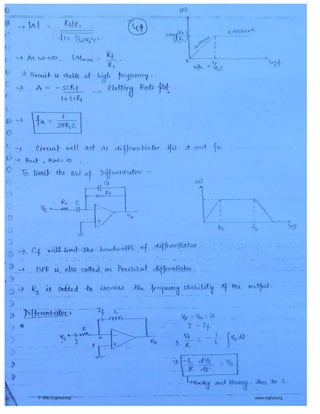 49
→ |A| = Rf/R1 / √1+ 1/ω²R1²C²
→ As ω→∞, |A|max = Rf / R1
→ Circuit is stable at high frequency.
→ A = - SCRf / 1+SCR1 → Plotting Bode plot
→ fa = 1 / 2πR1C
→ Circuit will act as differentiator b/w 0 and fa.
→ But, BW = ∞
To limit the BW of Differentiator -
Cf
Rf
R1 C
→ Cf will limit the bandwidth of differentiator.
→ BPF is also called as Practical differentiator.
→ R1 is added to increase the frequency stability of the output.
Differentiator:
If L
R
I
Vp = Vn = 0
I = If
-L/R dVs/dt = Vo
→ Heavy and Heavy. due to L.
© Wiki Engineering
www.raghul.org